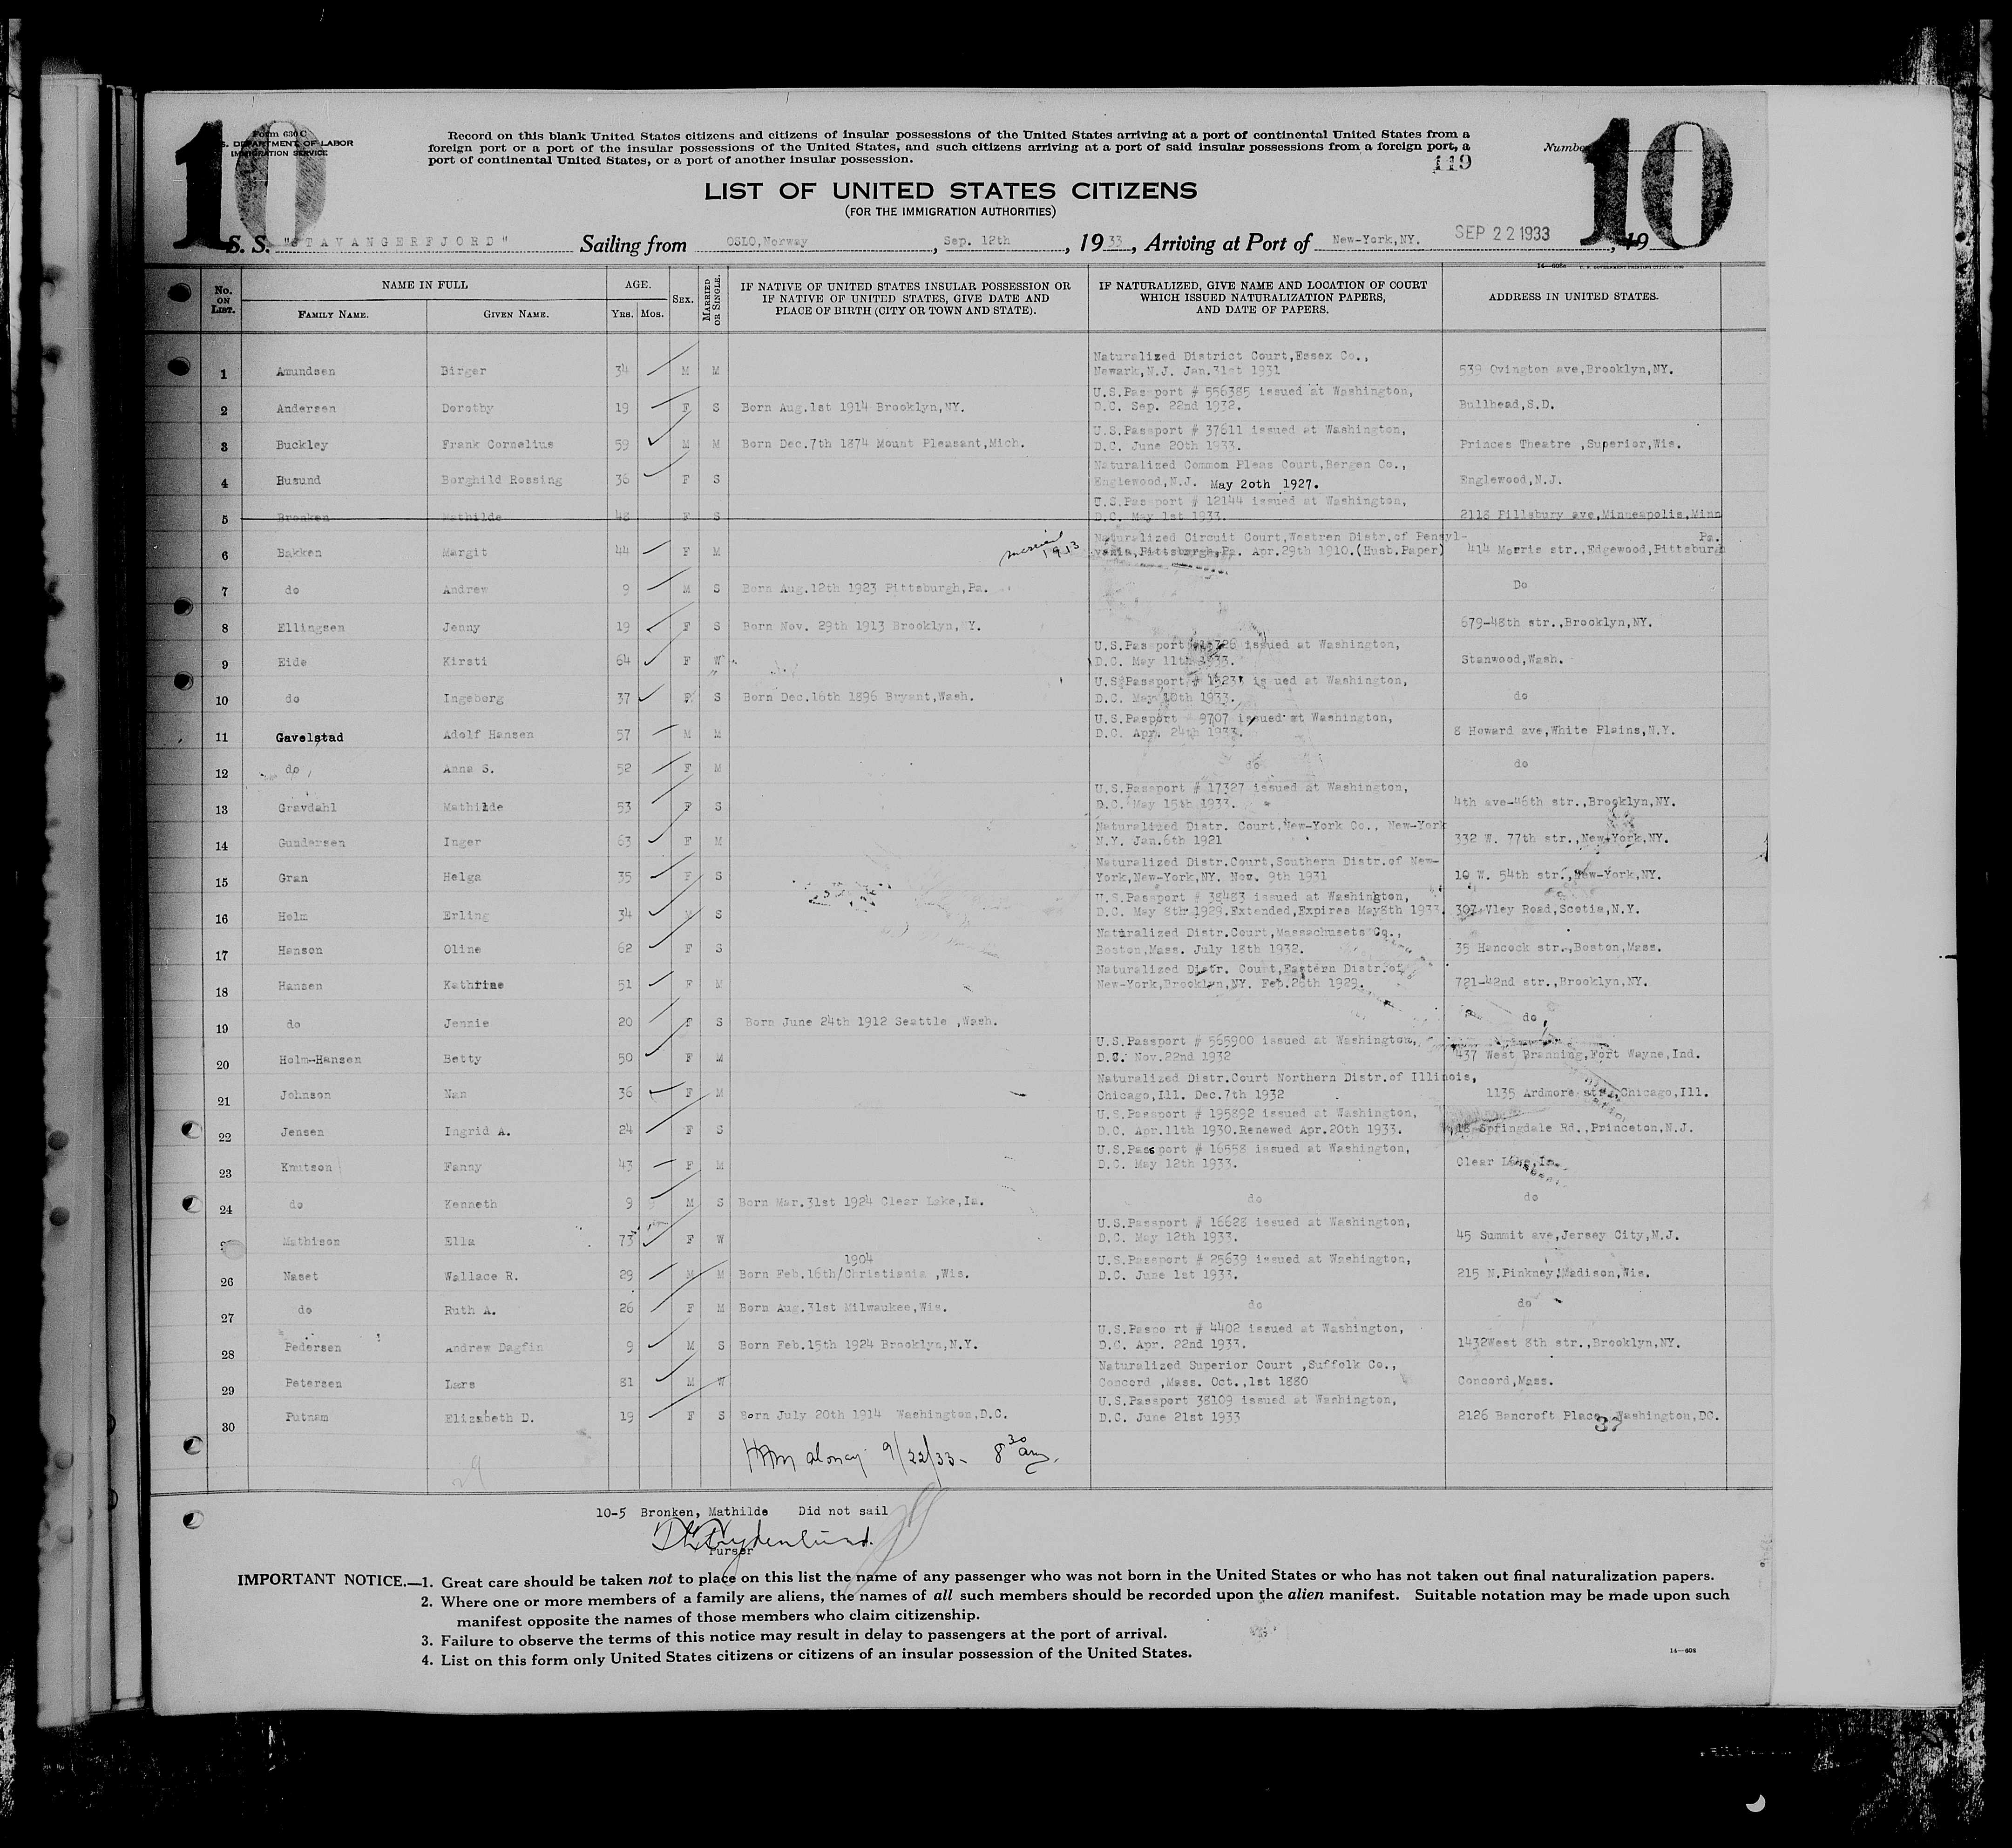 10
Form 630 C
U. S. DEPARTMENT OF LABOR
IMMIGRATION SERVICE
Record on this blank United States citizens and citizens of insular possessions of the United States arriving at a port of continental United States from a
foreign port or a port of the insular possessions of the United States, and such citizens arriving at a port of said insular possessions from a foreign port, a
port of continental United States, or a port of another insular possession.
119
Number
10
LIST OF UNITED STATES CITIZENS
(FOR THE IMMIGRATION AUTHORITIES)
S. S. "STAVANGERFJORD" Sailing from OSLO,Norway, Sep. 12th, 1933, Arriving at Port of New-York,NY. SEP 22 1933, 19
No. ON LIST. NAME IN FULL FAMILY NAME. GIVEN NAME. AGE. YRS. MOS. SEX. MARRIED OR SINGLE. IF NATIVE OF UNITED STATES INSULAR POSSESSION OR IF NATIVE OF UNITED STATES, GIVE DATE AND PLACE OF BIRTH (CITY OR TOWN AND STATE). IF NATURALIZED, GIVE NAME AND LOCATION OF COURT WHICH ISSUED NATURALIZATION PAPERS, AND DATE OF PAPERS. ADDRESS IN UNITED STATES.
1 Amundsen Birger 34 M M Naturalized District Court,Essex Co., Newark,N.J. Jan.31st 1931 539 Ovington ave,Brooklyn,NY.
2 Andersen Dorothy 19 F S Born Aug.1st 1914 Brooklyn,NY. U.S.Passport # 556385 issued at Washington, D.C. Sep. 22nd 1932. Bullhead,S.D.
3 Buckley Frank Cornelius 59 M M Born Dec.7th 1874 Mount Pleasant,Mich. U.S.Passport # 37611 issued at Washington, D.C. June 20th 1933. Princes Theatre ,Superior,Wis.
4 Busund Borghild Rossing 36 F S Naturalized Common Pleas Court,Bergen Co., Englewood,N.J. May 20th 1927. Englewood,N.J.
5 Bronken Mathilde 48 F S U.S.Passport # 12144 issued at Washington, D.C. May 1st 1933. 2118 Pillsbury ave,Minneapolis,Minn
6 Bakken Margit 44 F M married 1913 Naturalized Circuit Court,Westren Distr.of Pensyl-vania,Pittsburgh,Pa. Apr.29th 1910.(Husb.Paper) 414 Morris str.,Edgewood,Pittsburgh Pa.
7 do Andrew 9 M S Born Aug.12th 1923 Pittsburgh,Pa. Do
8 Ellingsen Jenny 19 F S Born Nov. 29th 1913 Brooklyn, Y. 679-48th str.,Brooklyn,NY.
9 Eide Kirsti 64 F W U.S.Passport issued at Washington, D.C. May 11th 1933. Stanwood,Wash.
10 do Ingeborg 37 F S Born Dec.16th 1896 Bryant,Wash. U.S.Passport # issued at Washington, D.C. May 10th 1933. do
11 Gavelstad Adolf Hansen 57 M M U.S.Pasport 9707 issued at Washington, D.C. Apr. 24th 1933. 8 Howard ave,White Plains,N.Y.
12 do Anna S. 52 F M do do
13 Gravdahl Mathilde 53 F S U.S.Passport # 17327 issued at Washington, D.C. May 15th 1933. 4th ave-46th str.,Brooklyn,NY.
14 Gundersen Inger 63 F M Naturalized Distr. Court,New-York Co., New-York N.Y. Jan.6th 1921 332 W. 77th str.,New-York,NY.
15 Gran Helga 35 F S Naturalized Distr.Court,Southern Distr.of New-York,New-York,NY. Nov. 9th 1931 10 W. 54th str.,New-York,NY.
16 Holm Erling 34 M S U.S.Passport # 38483 issued at Washington, D.C. May 8th 1929.Extended,Expires May8th 1933. 307 Vley Road,Scotia,N.Y.
17 Hanson Oline 62 F S Naturalized Distr.Court,Massachusets Co., Boston,Mass. July 18th 1932. 35 Hancock str.,Boston,Mass.
18 Hansen Kathrine 51 F M Naturalized Distr. Court,Eastern Distr.of New-York,Brooklyn,NY. Feb.26th 1929. 721-42nd str.,Brooklyn,NY.
19 do Jennie 20 F S Born June 24th 1912 Seattle ,Wash. do
20 Holm-Hansen Betty 50 F M U.S.Passport # 565900 issued at Washington, D.C. Nov.22nd 1932 437 West Branning,Fort Wayne,Ind.
21 Johnson Nan 36 F M Naturalized Distr.Court Northern Distr.of Illinois, Chicago,Ill. Dec.7th 1932 1135 Ardmore str.,Chicago,Ill.
22 Jensen Ingrid A. 24 F S U.S.Passport # 195892 issued at Washington, D.C. Apr.11th 1930.Renewed Apr.20th 1933. 18 Springdale Rd.,Princeton,N.J.
23 Knutson Fanny 43 F M U.S.Passport # 16558 issued at Washington, D.C. May 12th 1933. Clear Lake,Ia.
24 do Kenneth 9 M S Born Mar.31st 1924 Clear Lake,Ia. do do
Mathison Ella 73 F W U.S.Passport # 16628 issued at Washington, D.C. May 12th 1933. 45 Summit ave,Jersey City,N.J.
26 Naset Wallace R. 29 M M Born Feb.16th/Christiania ,Wis. 1904 U.S.Passport # 25639 issued at Washington, D.C. June 1st 1933. 215 N.Pinkney,Madison,Wis.
27 do Ruth A. 26 F M Born Aug.31st Milwaukee,Wis. do do
28 Pedersen Andrew Dagfin 9 M S Born Feb.15th 1924 Brooklyn,N.Y. U.S.Paspo rt # 4402 issued at Washington, D.C. Apr. 22nd 1933. 1432West 8th str.,Brooklyn,NY.
29 Petersen Lars 81 M W Naturalized Superior Court ,Suffolk Co., Concord ,Mass. Oct.,1st 1880 Concord,Mass.
30 Putnam Elizabeth D. 19 F S Born July 20th 1914 Washington,D.C. U.S.Passport 38109 issued at Washington, D.C. June 21st 1933 2126 Bancroft Place, Washington,DC.
37
29
9/22/33- 8 30 am.
10-5 Bronken, Mathilde Did not sail
Purser
IMPORTANT NOTICE.—1. Great care should be taken not to place on this list the name of any passenger who was not born in the United States or who has not taken out final naturalization papers.
2. Where one or more members of a family are aliens, the names of all such members should be recorded upon the alien manifest. Suitable notation may be made upon such
manifest opposite the names of those members who claim citizenship.
3. Failure to observe the terms of this notice may result in delay to passengers at the port of arrival.
4. List on this form only United States citizens or citizens of an insular possession of the United States.
14—608